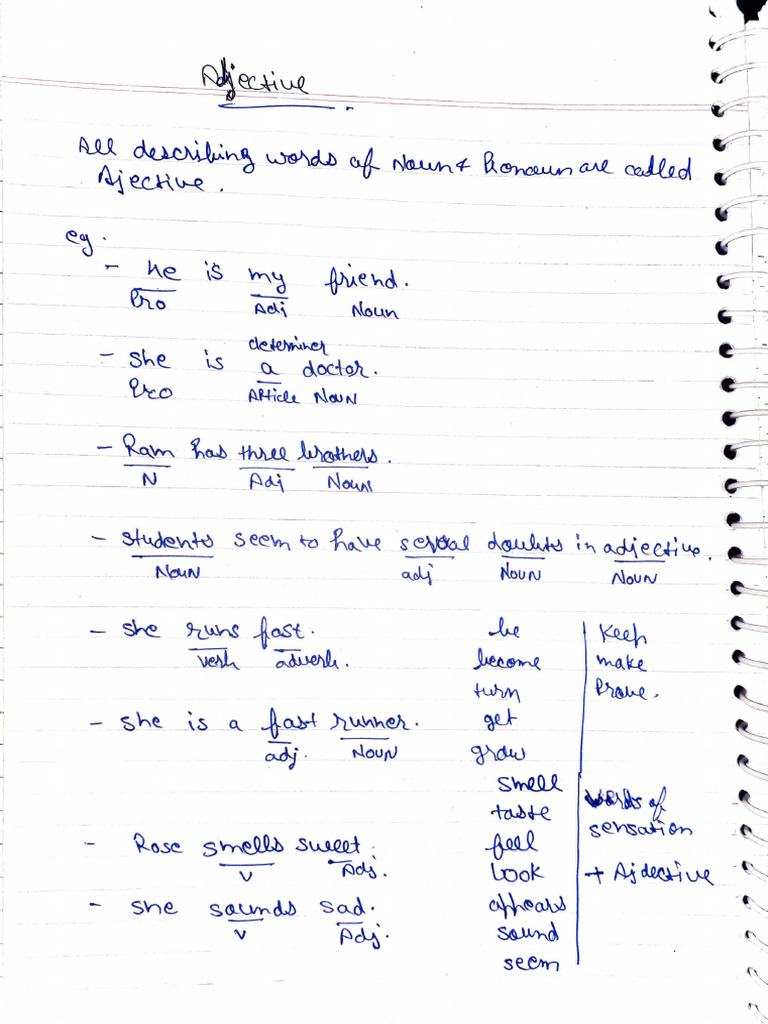 Adjective
All describing words of Noun & Pronoun are called
Ajective.
eg.
- he is my friend.
Pro Adj Noun
determiner
- she is a doctor.
Pro Article Noun
- Ram has three brothers.
N Adj Noun
- students seem to have several doubts in adjective.
Noun adj Noun Noun
- she runs fast.
verb adverb.
- she is a fast runner.
adj. Noun
- Rose smells sweet.
V Adj.
- she sounds sad.
V Adj.
be
become
turn
get
grow
smell
taste
feel
look
appears
sound
seem
Keep
make
Prove.
words of
sensation
+ Ajdective